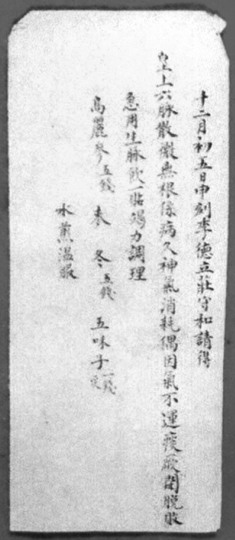 十二月初五日申刻李德立莊守和請得
皇上六脉散微無根係病久神氣消耗偶因氣不運痰厥閉脫散
急用生脉飲一貼竭力調理
高麗參五錢 麥 冬五錢 五味子一錢
水煎溫服